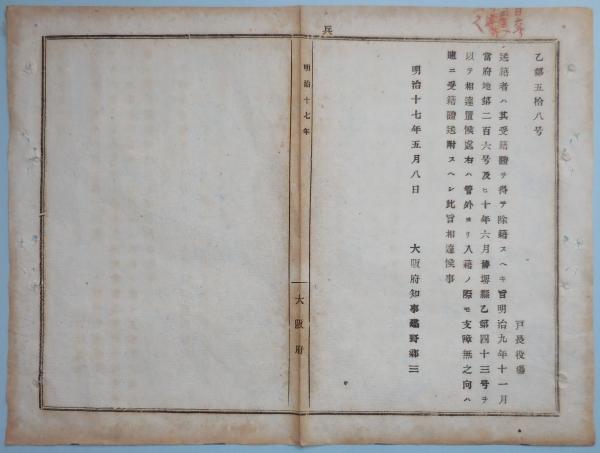 乙第五拾八号
戸長役場
送籍者ハ其受籍證ヲ得テ除籍スヘキ旨明治九年十一月
當府地第二百六号及ヒ十年六月舊堺縣乙第四十三号ヲ
以テ相達置候處右ハ管外ヨリ入籍ノ際モ支障無之向ハ
速ニ受籍證送附スヘシ此旨相達候事
明治十七年五月八日
大阪府知事建野郷三
兵
明治十七年
大阪府